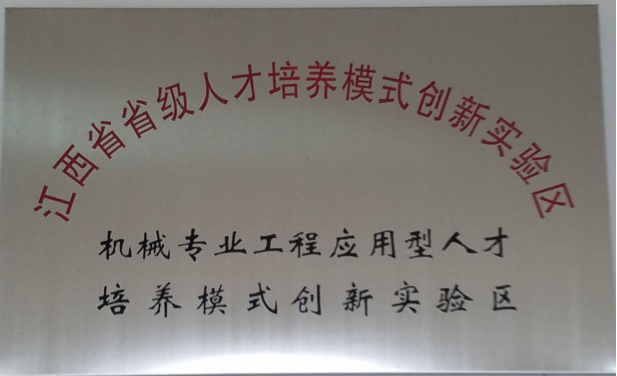 江西省省级人才培养模式创新实验区
机械专业工程应用型人才
培养模式创新实验区